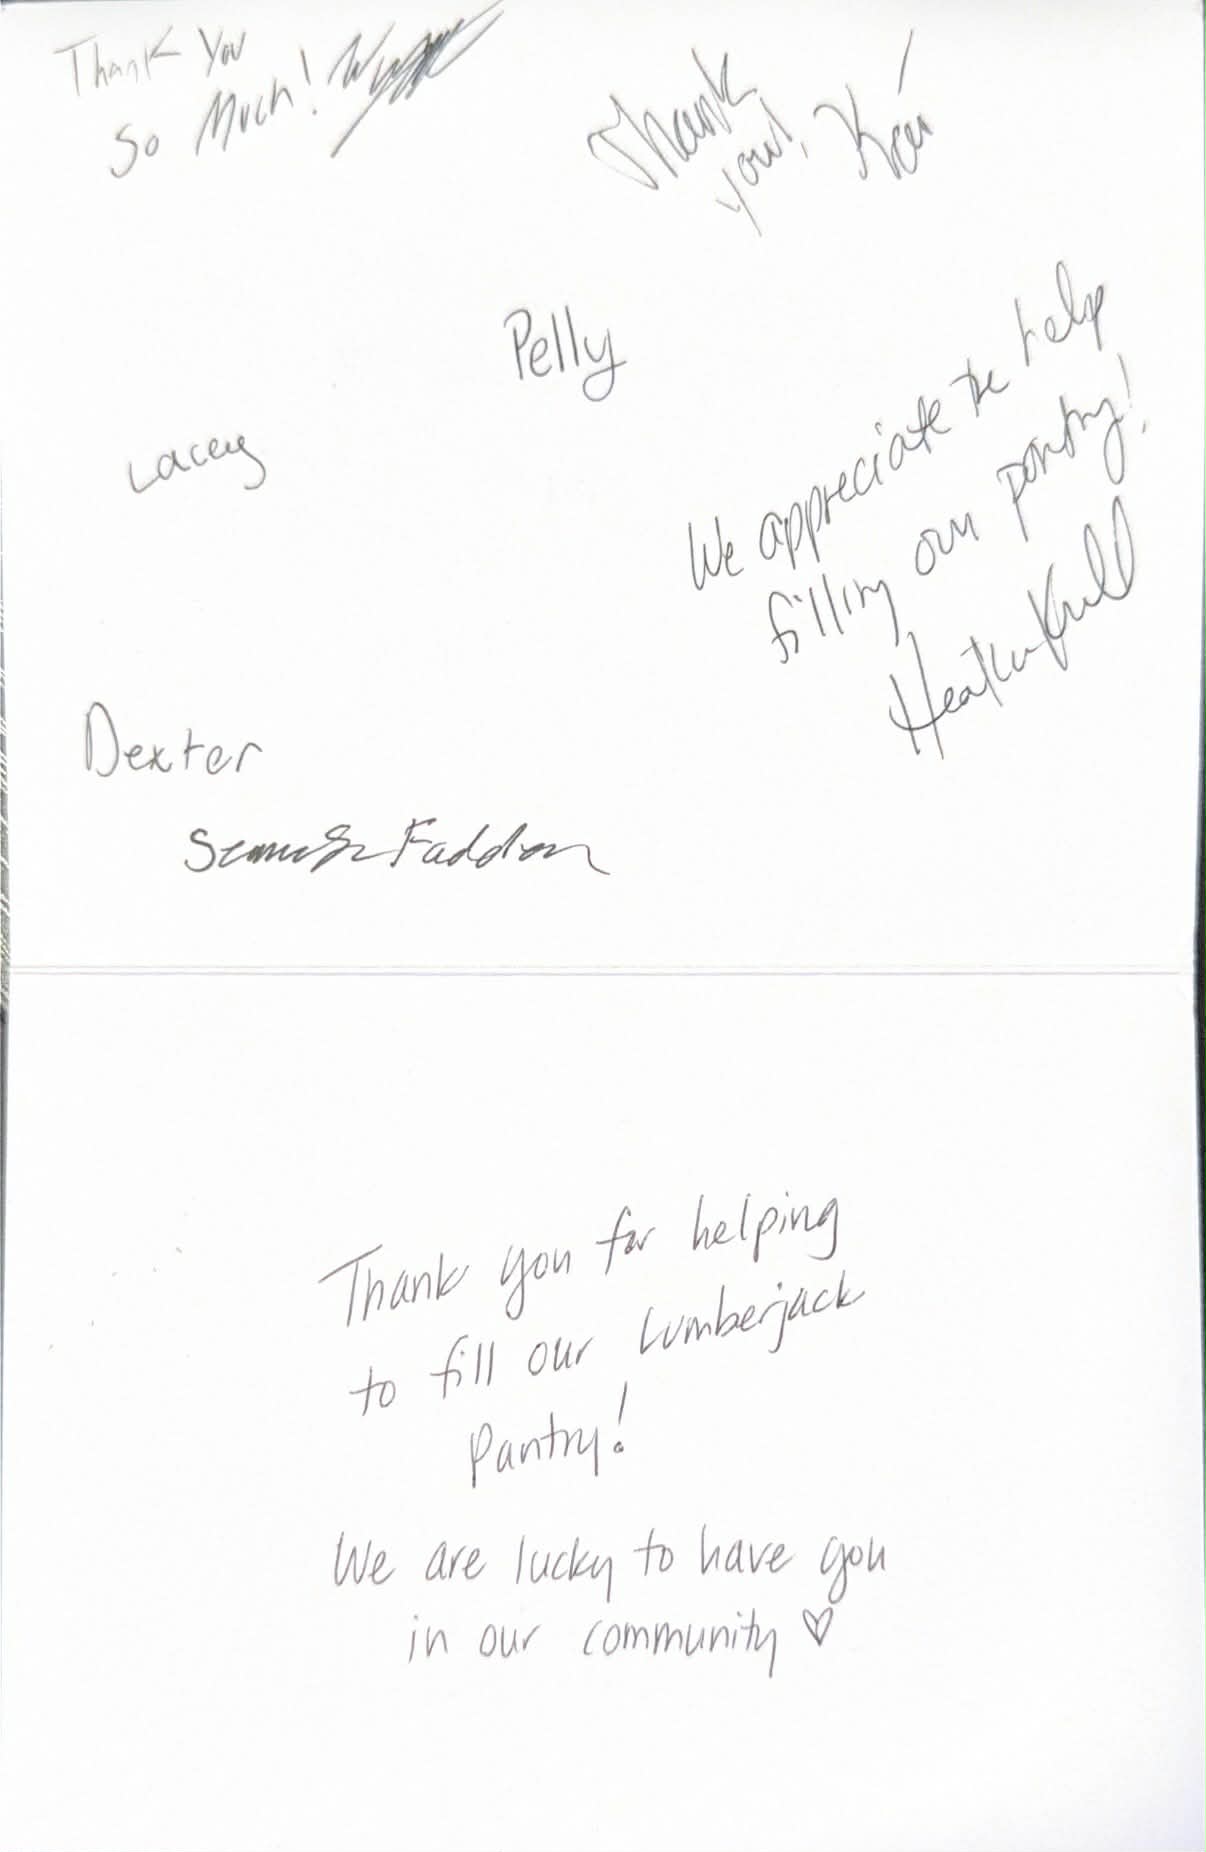 Thank You
So Much!
Thank
you!
Pelly
Lacey
We appreciate the help
filling our pantry!
Heather Krull
Dexter
Faddon
Thank you for helping
to fill our Lumberjack
Pantry!
We are lucky to have you
in our community ♡